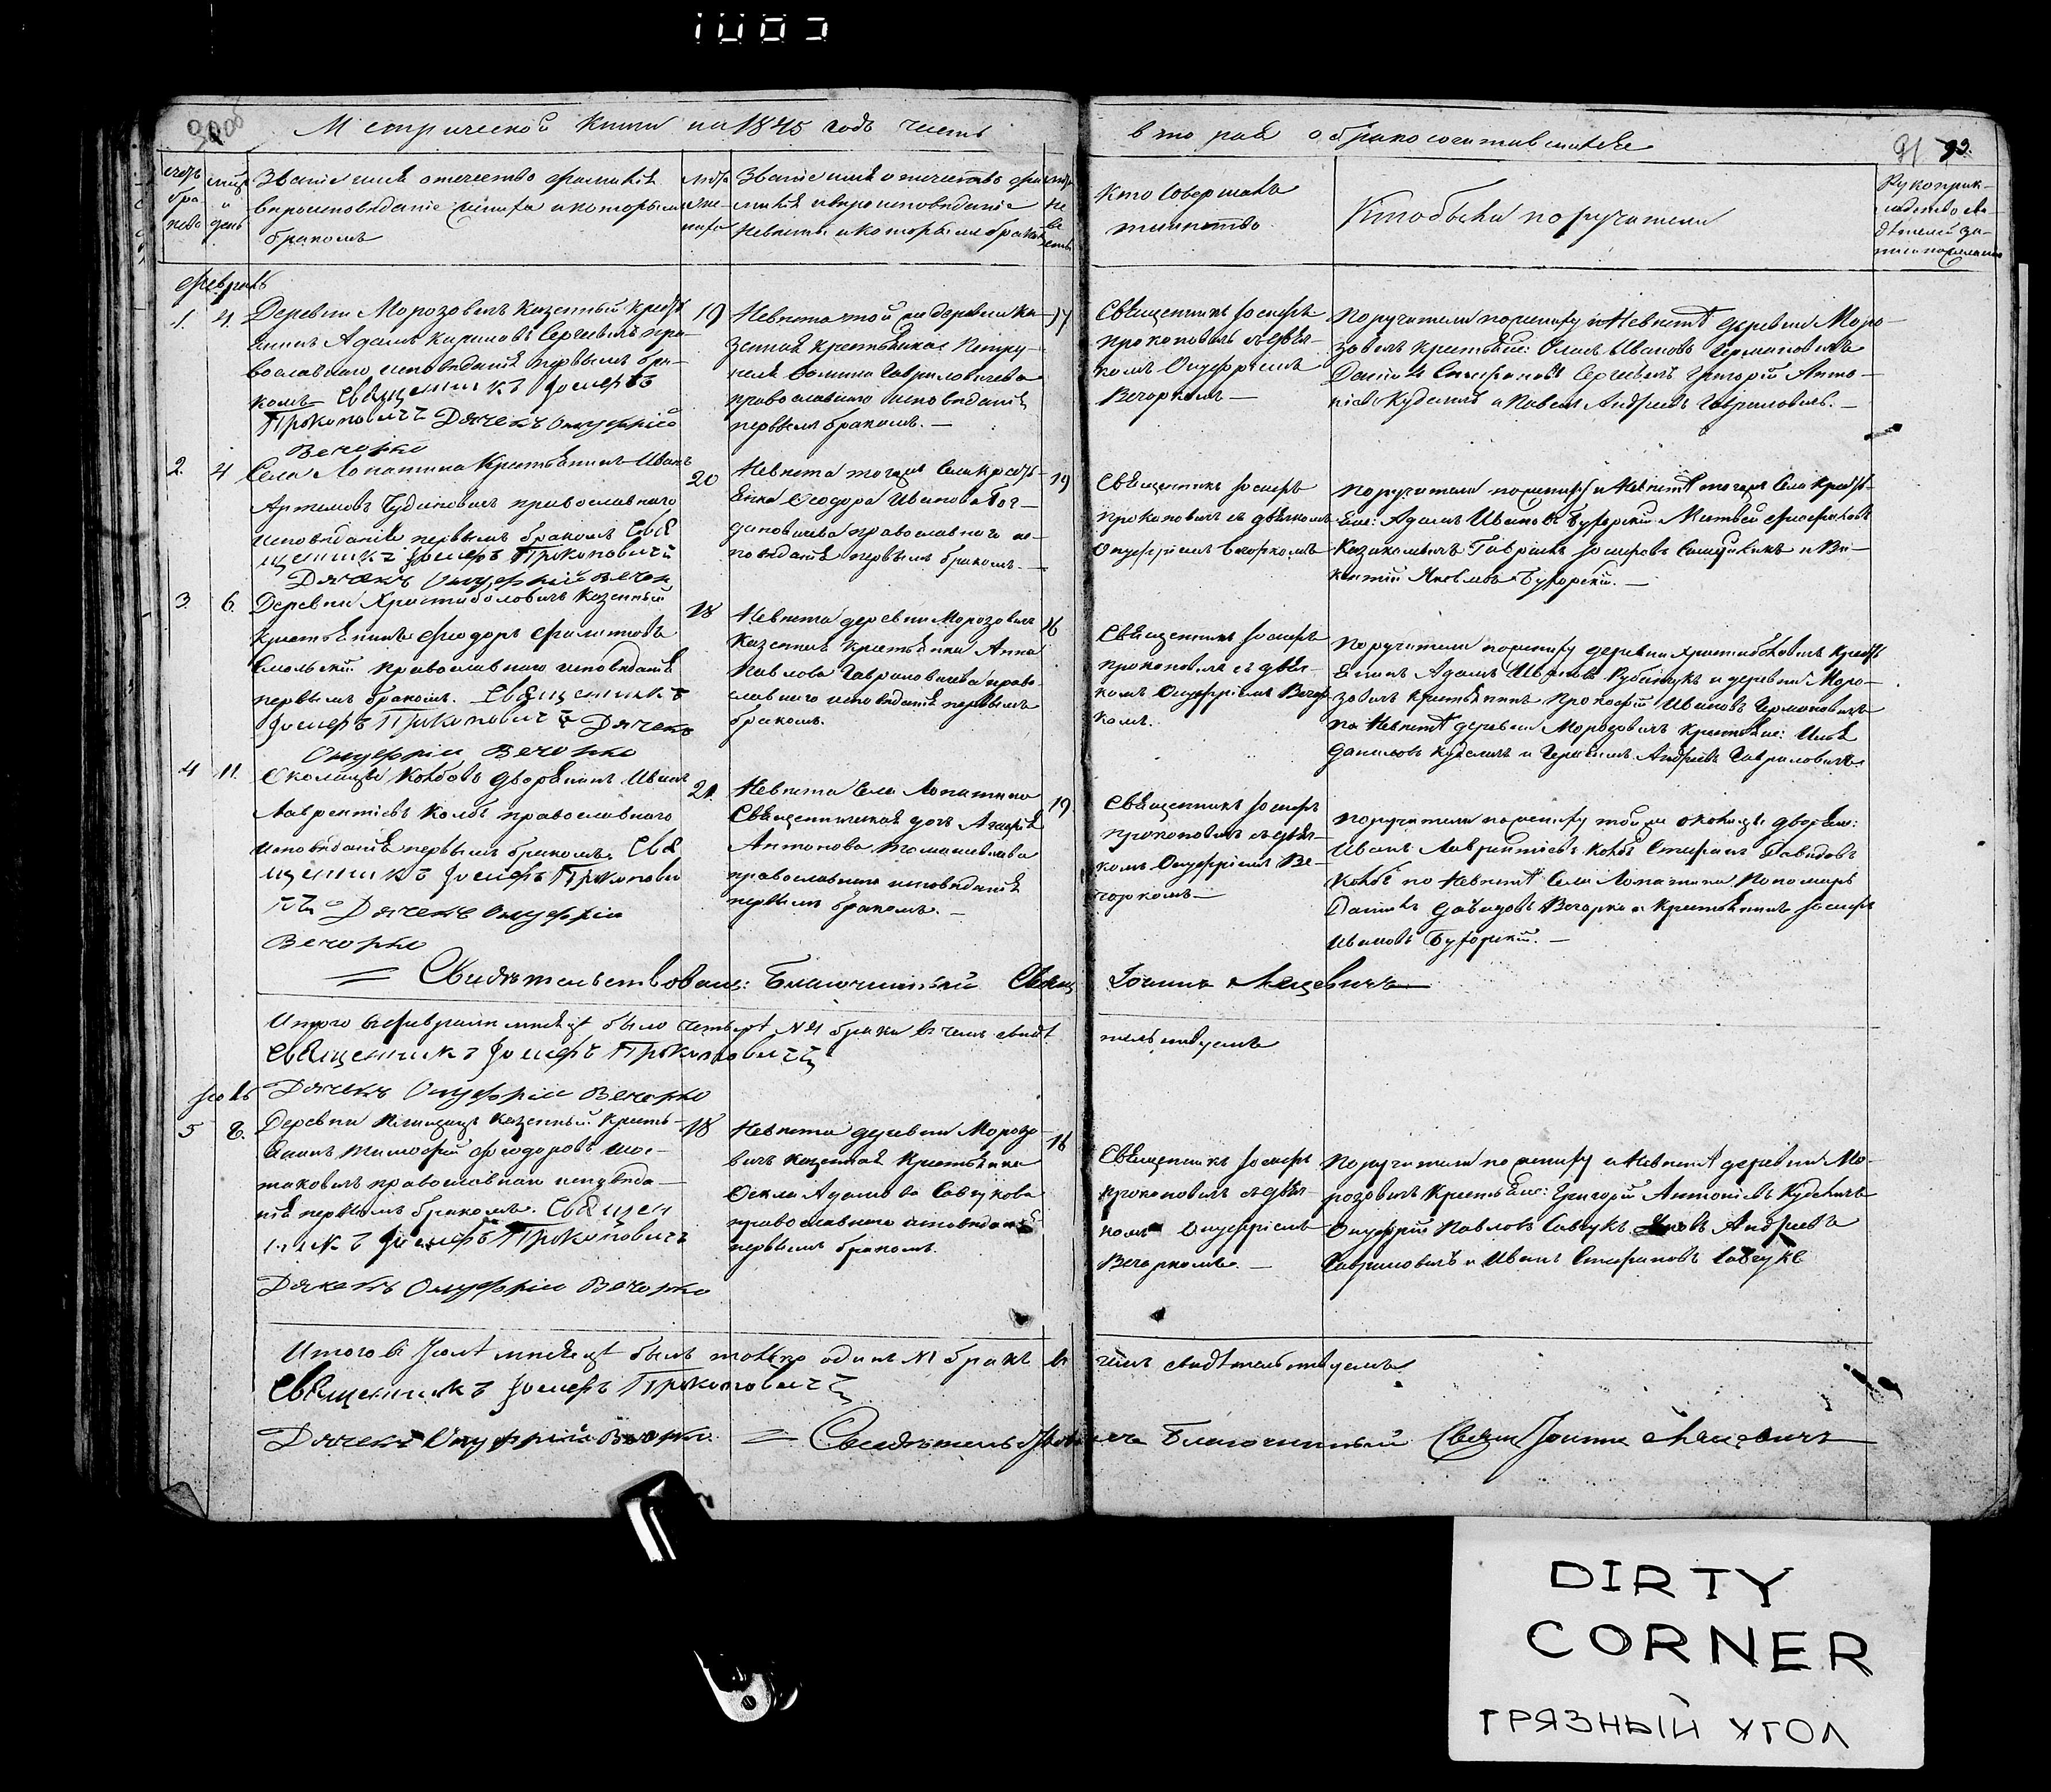 Метрической книги на 1845 годъ часть
вторая о бракосочитавшихся
91
Званіе имя отечество фамилія
вероисповеданіе жениха и которымъ
бракомъ
Званіе имя и отечество фамилія
и вероисповеданіе
невесты и которымъ бракомъ
Кто совершалъ
таинство
Кто были поручители
Февраль
1. 4. Деревни Морозовичъ казенный кресть
янинъ Адамъ Карповъ Сергѣевичъ пра
вославнаго исповеданія первымъ бра-
комъ Священникъ Іосифъ
Прокоповичъ Дячекъ Онуфрій
Вечорко
19
Невеста той же деревни ка-
зенная крестьянка Петру-
нелія Гавриловичева
православнаго исповеданія
первымъ бракомъ. —
17
Священникъ Іосифъ
Прокоповичъ съ дьяч-
комъ Онуфріемъ
Вечоркомъ —
Поручители по жениху и невестѣ деревни Моро-
зовичъ крестьяне: Ивановъ Германовичъ
Стефановъ Сергѣевичъ Григорій Анто-
ніевъ Куделичъ и Павелъ Андреевъ Гавриловичъ. —
2. 4 Села Лопатина крестьянинъ Иванъ
Артемовъ православнаго
исповеданія первымъ бракомъ Свя
щенникъ Іосифъ Прокоповичъ
Дячекъ Онуфрій Вечорк
20
Невеста тогожъ села кресть-
янка Феодора Иванова Бог-
дановичева православнаго ис-
поведанія первымъ бракомъ. —
19
Священникъ Іосифъ
Прокоповичъ съ дьячкомъ
Онуфріемъ Вечоркомъ
Поручители по жениху и невестѣ тогожъ села кресть-
яне: Адамъ Ивановъ Матвей
Гаврилъ Іосифовъ и Ви-
кентій Яковлевъ
3. 6. Деревни Христиболовичъ казенный
крестьянинъ Феодоръ Филиповъ
Смольскій православнаго исповеданія
первымъ бракомъ. Священникъ
Іосифъ Прокоповичъ Дячекъ
Онуфрій Вечорко
18
Невеста деревни Морозовичъ
казенная крестьянка Анна
Павлова Гавриловичева право-
славнаго исповеданія первымъ
бракомъ.
16
Священникъ Іосифъ
Прокоповичъ съ дьяч-
комъ Онуфріемъ Вечор
комъ.
Поручители по жениху деревни Христиболовичъ кресть
янинъ Адамъ Ивановъ и деревни Моро-
зовичъ крестьянинъ Прокофій Ивановъ Германовичъ
по невестѣ деревни Морозовичъ крестьяне: Илья
Даниловъ Куделичъ и Герасимъ Андреевъ Гавриловичъ.
4 11. Околицы Колбовъ дворянинъ Иванъ
Лаврентіевъ Колбъ православнаго
исповеданія первымъ бракомъ. Свя
щенникъ Іосифъ Прокопови
чъ Дячекъ Онуфрій
Вечорко
21.
Невеста села Лопатина
Священническая дочь Агафія
Антонова Томашевичева
православнаго исповеданія
первымъ бракомъ. —
19.
Священникъ Іосифъ
Прокоповичъ съ дьяч-
комъ Онуфріемъ Ве-
чоркомъ —
Поручители по жениху той же околицы дворяне:
Иванъ Лаврентіевъ Колбъ Стефанъ Давидовъ
Колбъ по невестѣ села Лопатина пономарь
Давидовъ Вечорко и крестьянинъ Іосифъ
Ивановъ
Свидѣтельствовалъ: Благочинный Священ Іоаннъ
Итого въ февралѣ мѣсяцѣ было четыре № 4 брака въ чемъ свидѣ
тельствуемъ
Священникъ Іосифъ Прокоповичъ
Дячекъ Онуфрій Вечорко
Іюль
5 8. Деревни казенный кресть-
янинъ Тимофей Феодоровъ Шос-
таковичъ православнаго исповеда-
нія первымъ бракомъ. Священ
никъ Іосифъ Прокоповичъ
Дячекъ Онуфрій Вечорко
18
Невеста деревни Морозо
вичъ казенная крестьянка
Фекла Адамова Савчукова
православнаго исповеданія
первымъ бракомъ.
16
Священникъ Іосифъ
Прокоповичъ съ дьяч-
комъ Онуфріемъ
Вечоркомъ. —
Поручители по жениху и невестѣ деревни Мо-
розовичъ крестьяне: Григорій Антоніевъ Куделичъ
Онуфрій Павловъ Савчукъ Андреевъ
Гавриловичъ и Иванъ Стефановъ Савчукъ
Итого въ Іюлѣ мѣсяцѣ былъ только одинъ № 1 бракъ въ чемъ свидѣтельствуемъ
Священникъ Іосифъ Прокоповичъ
Дячекъ Онуфрій Вечорко
Свидѣтельствовалъ Благочинный Священ Іоаннъ
DIRTY
CORNER
ГРЯЗНЫЙ УГОЛ